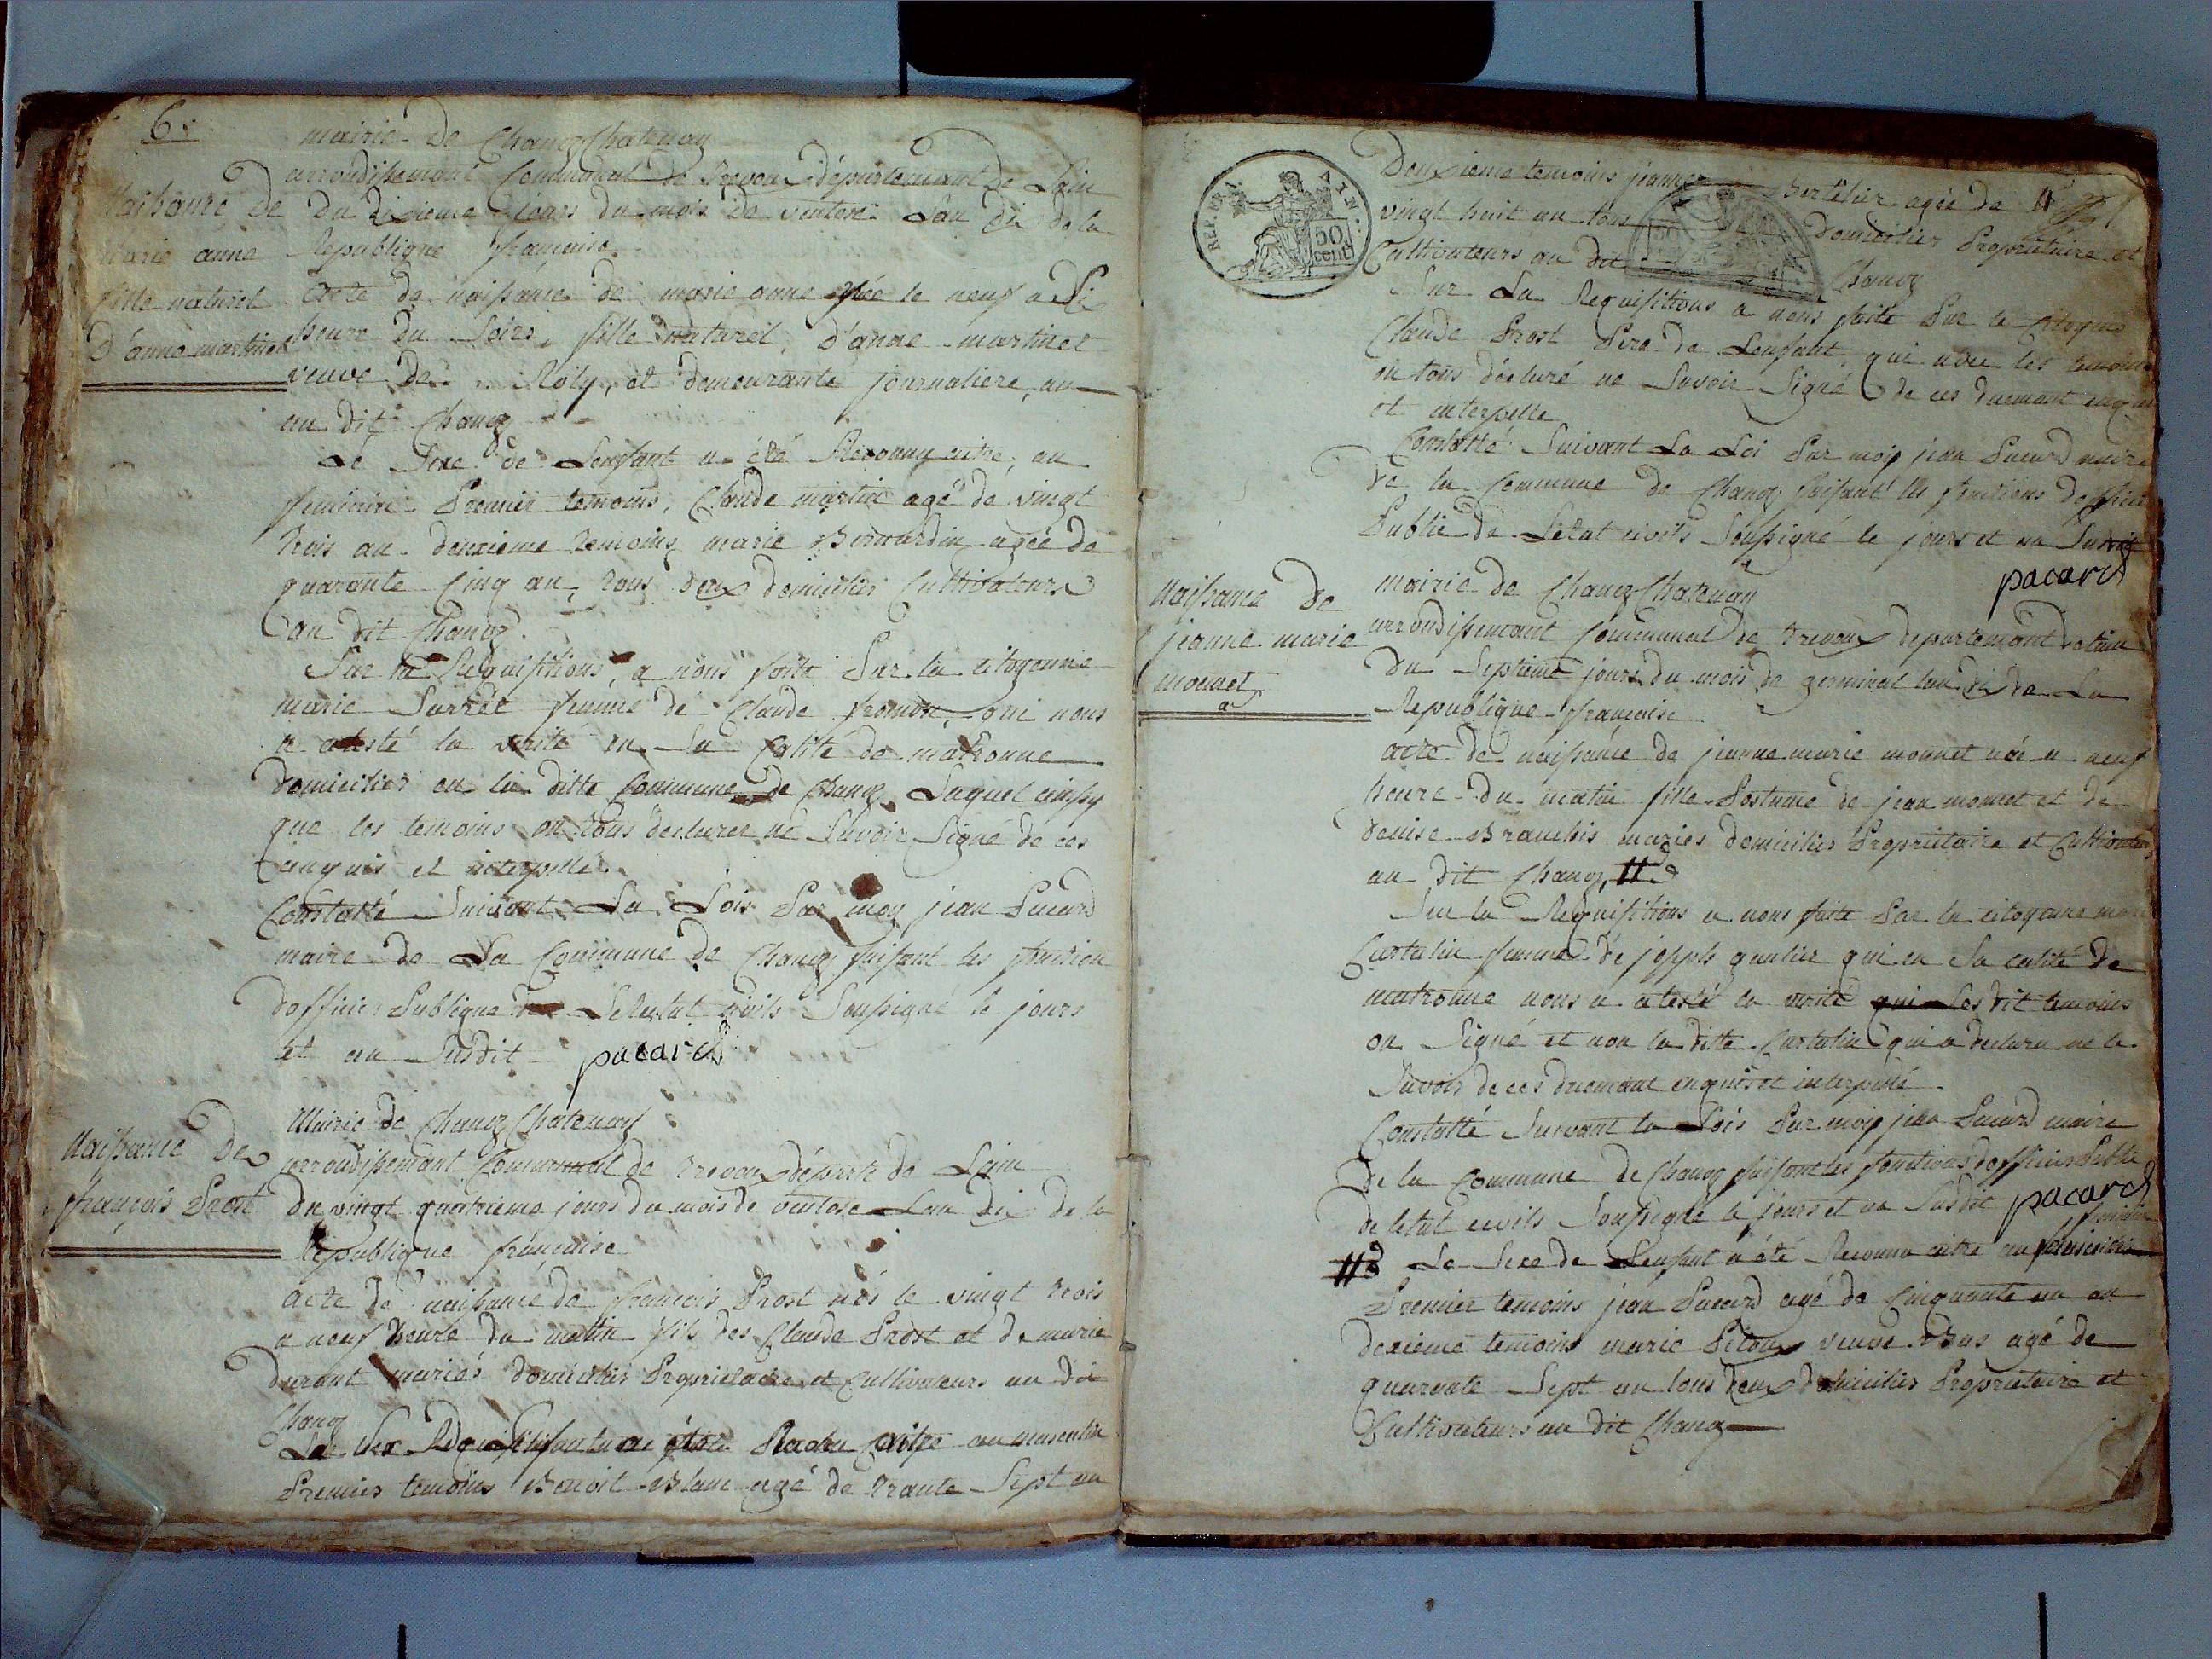 6.
mairie de Chanoz Chatenay
arrondissement Communal de Trevoux département de Lain
Naissance de
marie anne
fille naturel
d'anne martinet
Du dixieme jours du mois de ventose Lan dix de la
Republique française
acte de naissance de marie anne née le neuf a dix
heure du Soire, fille naturel, d'anne martinet
veuve de Roly, et demeurante journaliere, au
au dit Chanoz
Le Sexe de Lenfant a été Reconnu aitre, au
feminin Premier temoins, Claude martin agé de vingt
trois an deuxieme temoins marie Bernardin agée de
quarante Cinq an, tous deux domicilies Cultivateurs
au dit Chanoz.
Sur la Requisitions, a nous faite Par la citoyenne
marie femme de Claude froment, qui nous
a atesté la verité en Sa Calité de matronne
domicilies en la ditte Commune de Chanoz Laquel ainssy
que les temoins on tous declarer ne Savoir Signé de ces
enquis et interpellé.
Constatté Suivant La Lois Par moy jean Pacard
maire de La Commune de Chanoz faisant les fonction
dofficier Publique de Letat civils Soussigné le jours
et an Susdit pacard
Mairie de Chanoz Chatenay
Naissance de
françois Prost
arrondissement Communal de trevoux départe de Lain
du vingt quatrieme jours du mois de ventose Lan dix de la
Republique française
acte de naissance de françois Prost nés le vingt trois
a neuf heure du matin fils des Claude Prost et de marie
durant mariés domicilies Proprietaire et Cultivateurs au dit
Chanoz
aitre au masculin
Premier temoins Benoit Blanc agé de trante Sept an
REP. FRA.
50
cent.
Deuxieme temoins jeanne Bertelier agée de
vingt huit an tous domicilier Proprietaire et
Cultivateurs au dit Chanoz
Sur La Requisitions a nous faite Par le Citoyen
Claude Prost Pere de Lenfant qui avec les temoins
on tous déclaré ne Savoir Signé de ces duemant enquis
et interpelle
Constatté Suivant La Loi Par moy jean Pacard maire
de la Commune de Chanoz faisant les fonctions dofficier
Public de Letat civils Soussigné le jours et an Susdit
pacard
Naissance de
jeanne marie
monnet
mairie de Chanoz Chatenay
arrondissemant Communal de trevoux departemant de lain
du Septieme jours du mois de germinal lan dix de La
Republique française
acte de naissance de jeanne marie monnet née a neuf
heure du matin fille Postume de jean monnet et de
denise maries domicilies Proprietaire et Cultivateurs
au dit Chanoz, #
Sur la Requisitions a nous faite Par la citoyenne marie
Curtalin femme de josseph gautier qui en Sa calité de
matronne nous a atesté la verité qui Les dit temoins
on Signé et non la ditte Curtalin qui a declaré ne le
Savoir de ces duemant enquis et interpellé
Constatté Suivant la Lois Par moy jean Pacard maire
de la Commune de Chanoz faisant les fonctions dofficier Public
de letat civils Soussigné le jours et an Susdit pacard
# Le Sexe de Lenfant a été Reconnu aitre au feminin
Premier temoins jean Pacard agé de Cinquante un an
dexieme temoins marie Pitoux veuve Bas agé de
quarante Sept an tous deux domicilies Proprietaire et
Cultivateurs au dit Chanoz